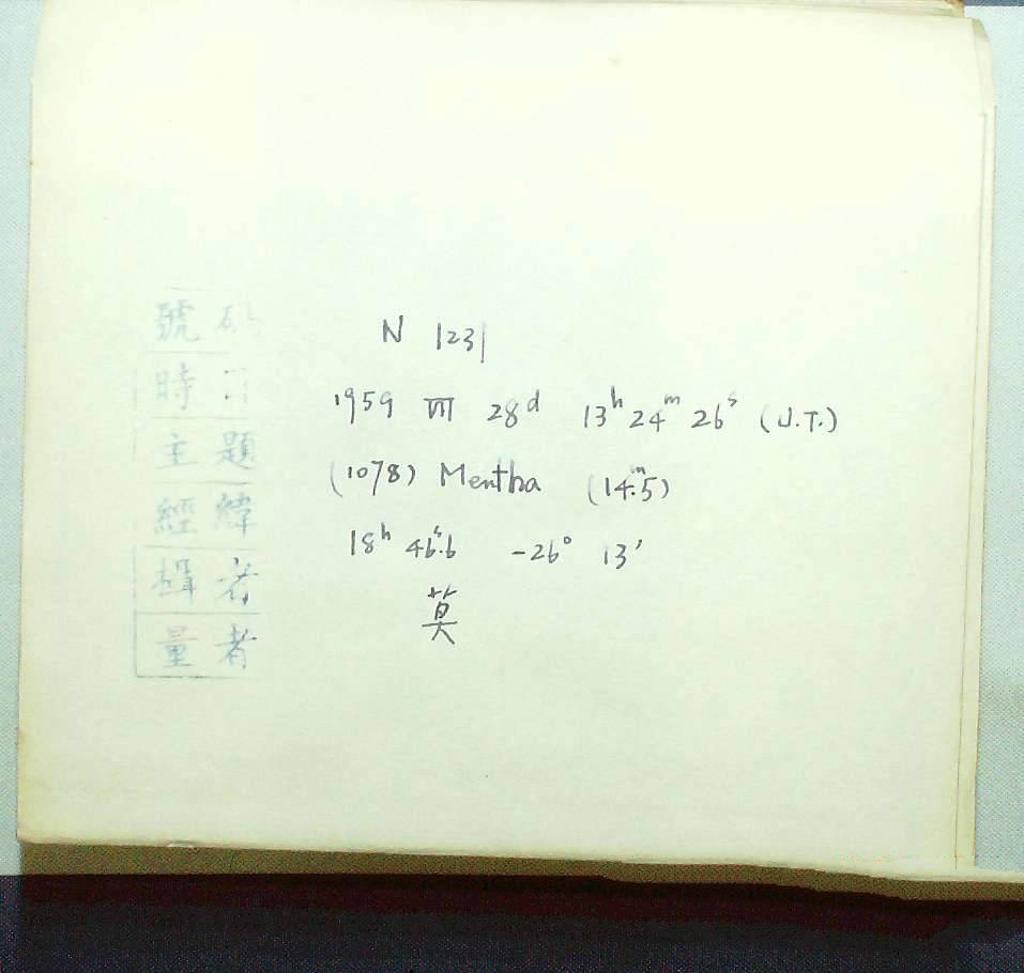 號碼
時
主題
經緯
者
量者
N 1231
1959 VII 28ᵈ 13ʰ 24ᵐ 26ˢ (U.T.)
(1078) Mentha (14ᵐ.5)
18ʰ 46ˢ.6 -26° 13′
莫